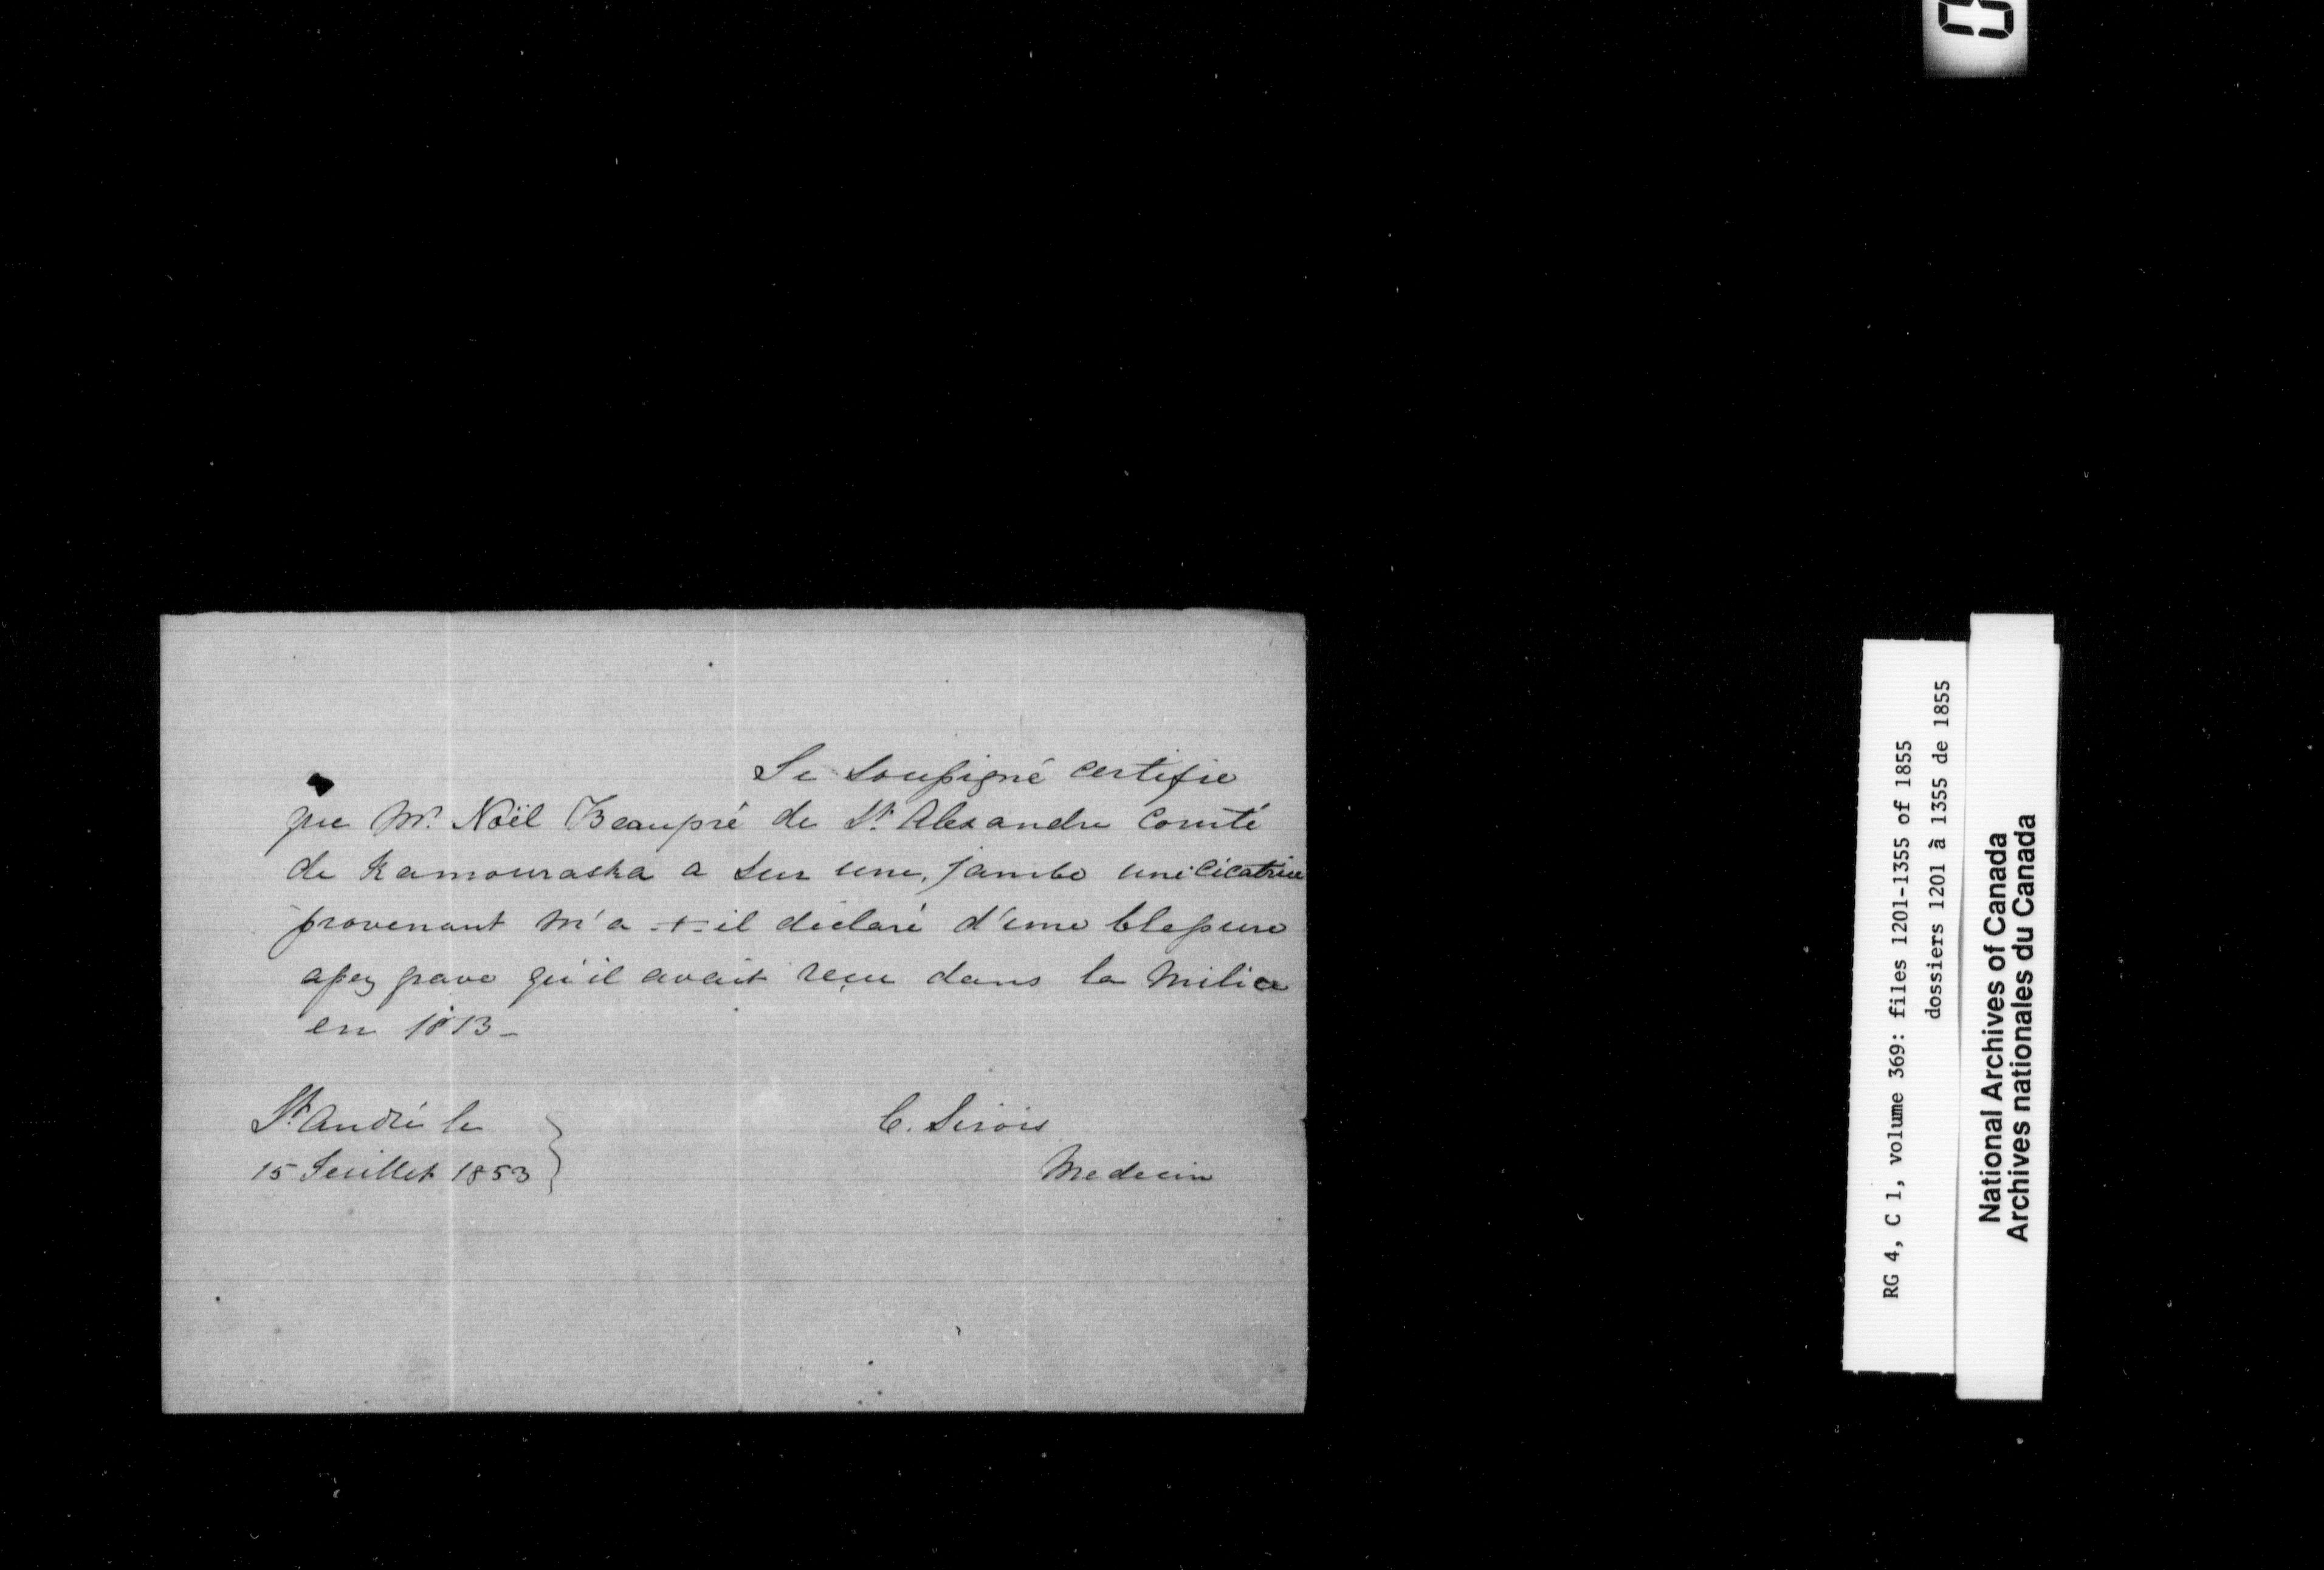 Je soussigné certifie
que Mr. Noël Beaupré de St. Alexandre Comté
de Kamouraska a sur une jambe une cicatrice
provenant m'a-t-il déclaré d'une blessure
assez grave qu'il avait reçu dans la milice
en 1813-
St. André le
15 Juillet 1853
C. Sirois
Medecin
RG 4, C 1, volume 369: files 1201-1355 of 1855
dossiers 1201 à 1355 de 1855
National Archives of Canada
Archives nationales du Canada